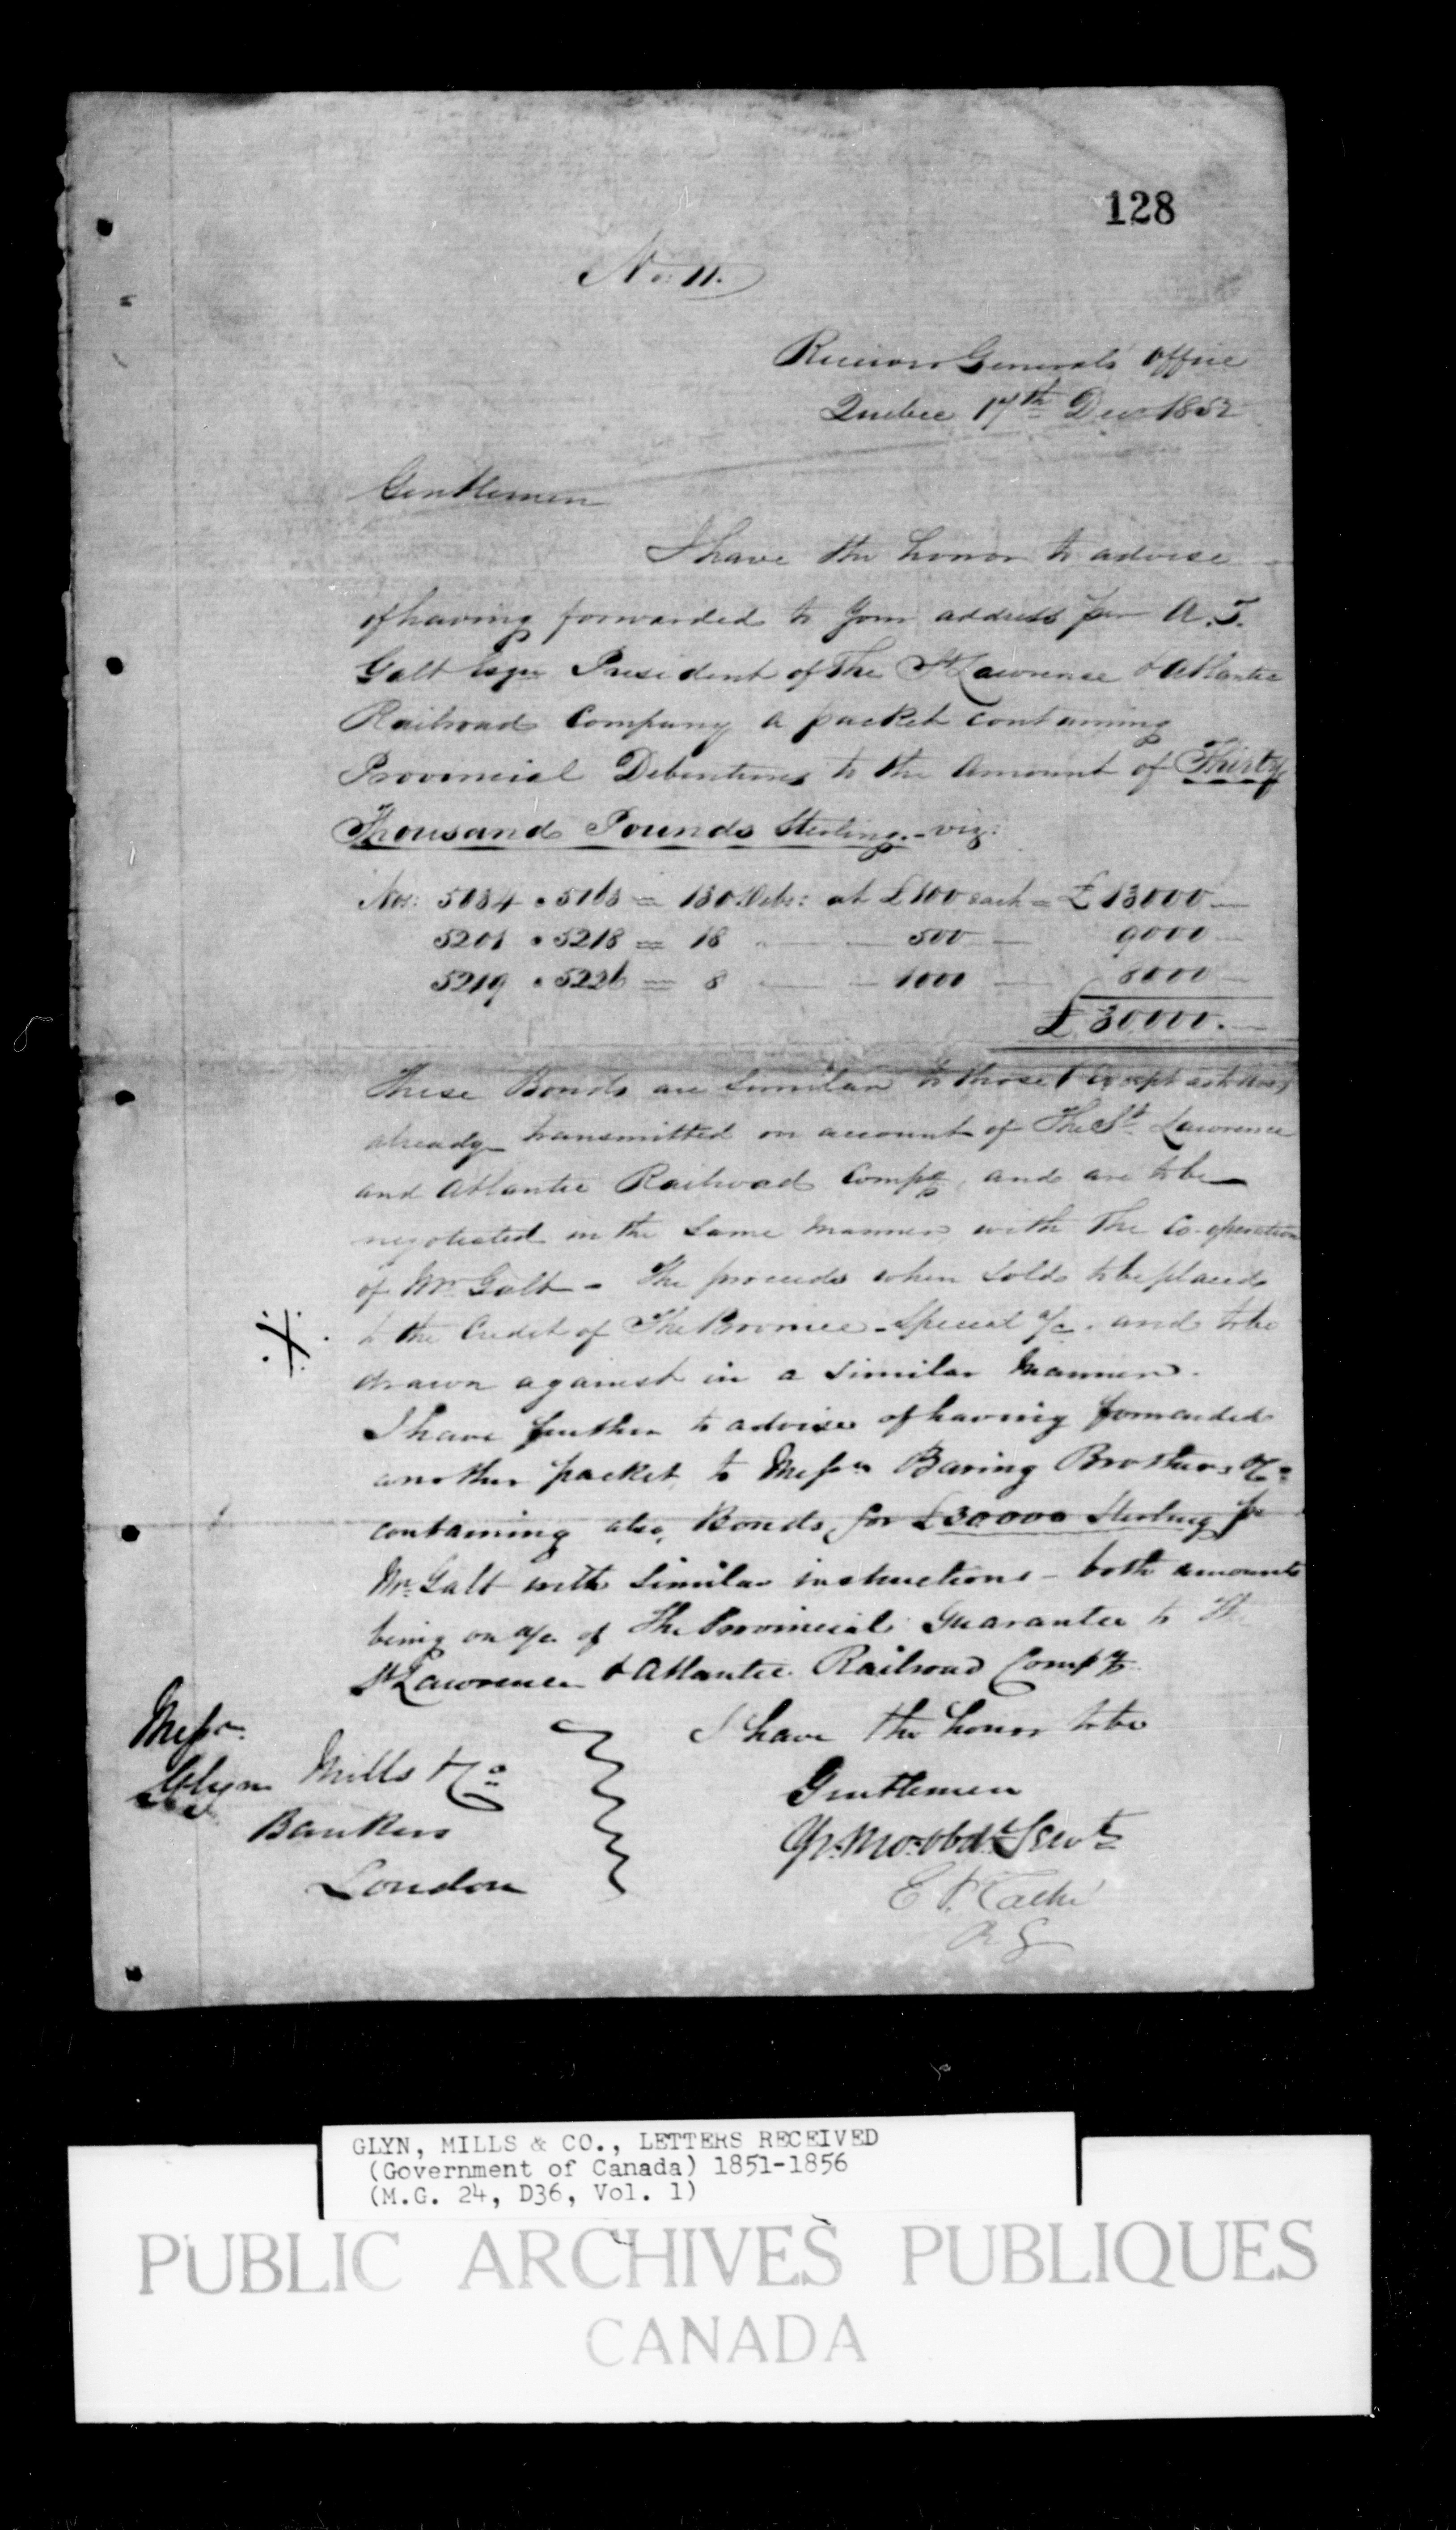 128
No: 11.
Receiver Generals' Office
Quebec 17th Decr 1852
Gentlemen
I have the honor to advise
of having forwarded to Your address per A. T.
Galt Esqre President of The St Lawrence & Atlantic
Railroad Company a packet containing
Provincial Debentures to the Amount of Thirty
Thousand Pounds Sterling. - viz:
Nos: 5034 @ 5163 = 130 Debs: at £100 each = £13000 —
5201 @ 5218 = 18 — 500 — 9000 —
5219 @ 5226 = 8 — 1000 — 8000 —
£30000. —
These Bonds are similar to those (except as to
already transmitted on account of The St. Lawrence
and Atlantic Railroad Compy, and are to be
negotiated in the same manner with The Co-operation
of Mr Galt - The proceeds when sold to be placed
to the Credit of The Province - Special a/c. and to be
drawn against in a similar manner.
I have further to advise of having forwarded
another packet to Messrs Baring Brothers & Co
containing also, Bonds, for £30000 Sterling per
Mr. Galt with similar instructions - both amounts
being on a/c of The Provincial Guarantee to
St Lawrence & Atlantic Railroad Compy.
I have the honor to be
Gentlemen
Yr. Mo. obdt Servt
E P. Taché
R G
Messrs
Glyn Mills & Co
Bankers
London
GLYN, MILLS & CO., LETTERS RECEIVED
(Government of Canada) 1851-1856
(M.G. 24, D36, Vol. 1)
PUBLIC ARCHIVES PUBLIQUES
CANADA